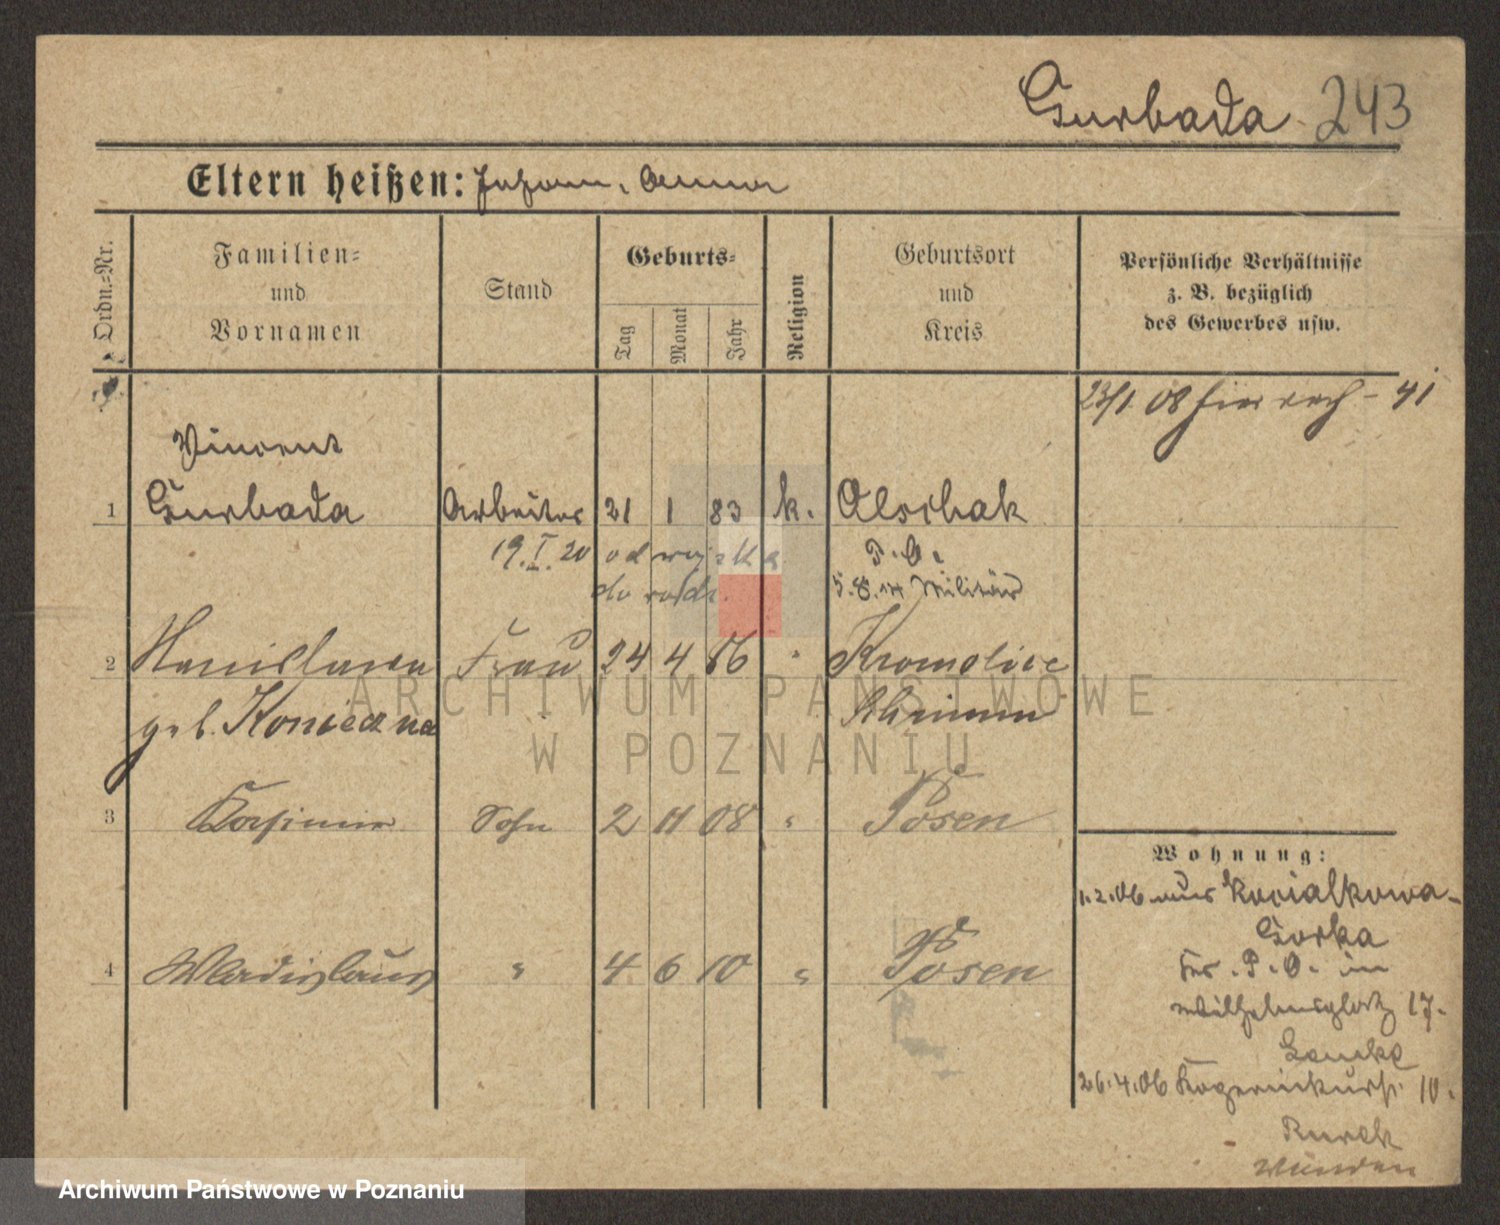 Gurbada 243
Eltern heißen: Johann, Anna
Ordn.-Nr.
Familien- und Vornamen
Stand
Geburts-
Tag
Monat
Jahr
Religion
Geburtsort und Kreis
Persönliche Verhältnisse
z. B. bezüglich
des Gewerbes usw.
23/1 08 hier noch - 41
Vincent
1 Gurbada Arbeiter 21 1 83 k. Olschak
19.I.20 od wojska P. O.
do 5.8.14 Militär
2 Stanislawa Frau 24 4 86 " Kromolice
geb. Konieczna Schrimm
3 Kasimir Sohn 2 11 08 " Posen
Wohnung:
1.2.06 aus Kocialkowa-
Gorka
4 Wladislaus " 4 6 10 " Posen
Krs. P. O. in
Wilhelmsplatz 17.
26.4.06 10.
ARCHIWUM PAŃSTWOWE
W POZNANIU
Archiwum Państwowe w Poznaniu